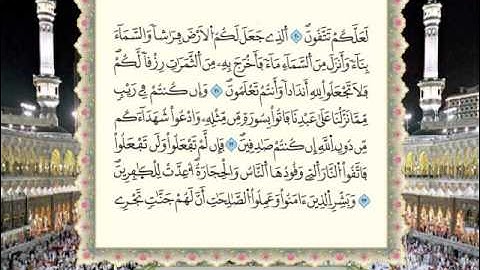 لَعَلَّكُمْ تَتَّقُونَ ۞ اَلذِے جَعَلَ لَكُمُ اُلَارْضَ فِرَٰشاً وَالسَّمَآءَ
بِنَآءً وَأَنزَلَ مِنَ اَلسَّمَآءِ مَآءً فَأَخْرَجَ بِهِۦ مِنَ اَلثَّمَرَٰتِ رِزْقاً لَّكُمْ
فَلَا تَجْعَلُواْ لِلهِ أَندَاداً وَأَنتُمْ تَعْلَمُونَ ۞ وَإِن كُنتُمْ فِے رَيْبٍ
مِّمَّا نَزَّلْنَا عَلَىٰ عَبْدِنَا فَاتُواْ بِسُورَةٍ مِّن مِّثْلِهِۦ وَادْعُواْ شُهَدَآءَكُم
مِّن دُونِ اِللَّهِ إِن كُنتُمْ صَٰدِقِينَ ۞ فَإِن لَّمْ تَفْعَلُواْ وَلَن تَفْعَلُواْ
فَاتَّقُواْ اُلنَّارَ اَلتِے وَقُودُهَا اَلنَّاسُ وَالْحِجَارَةُ أُعِدَّتْ لِلْكَٰفِرِينَ
۞ وَبَشِّرِ اِلذِينَ ءَامَنُواْ وَعَمِلُواْ اُلصَّٰلِحَٰتِ أَنَّ لَهُمْ جَنَّٰتٍ تَجْرِے